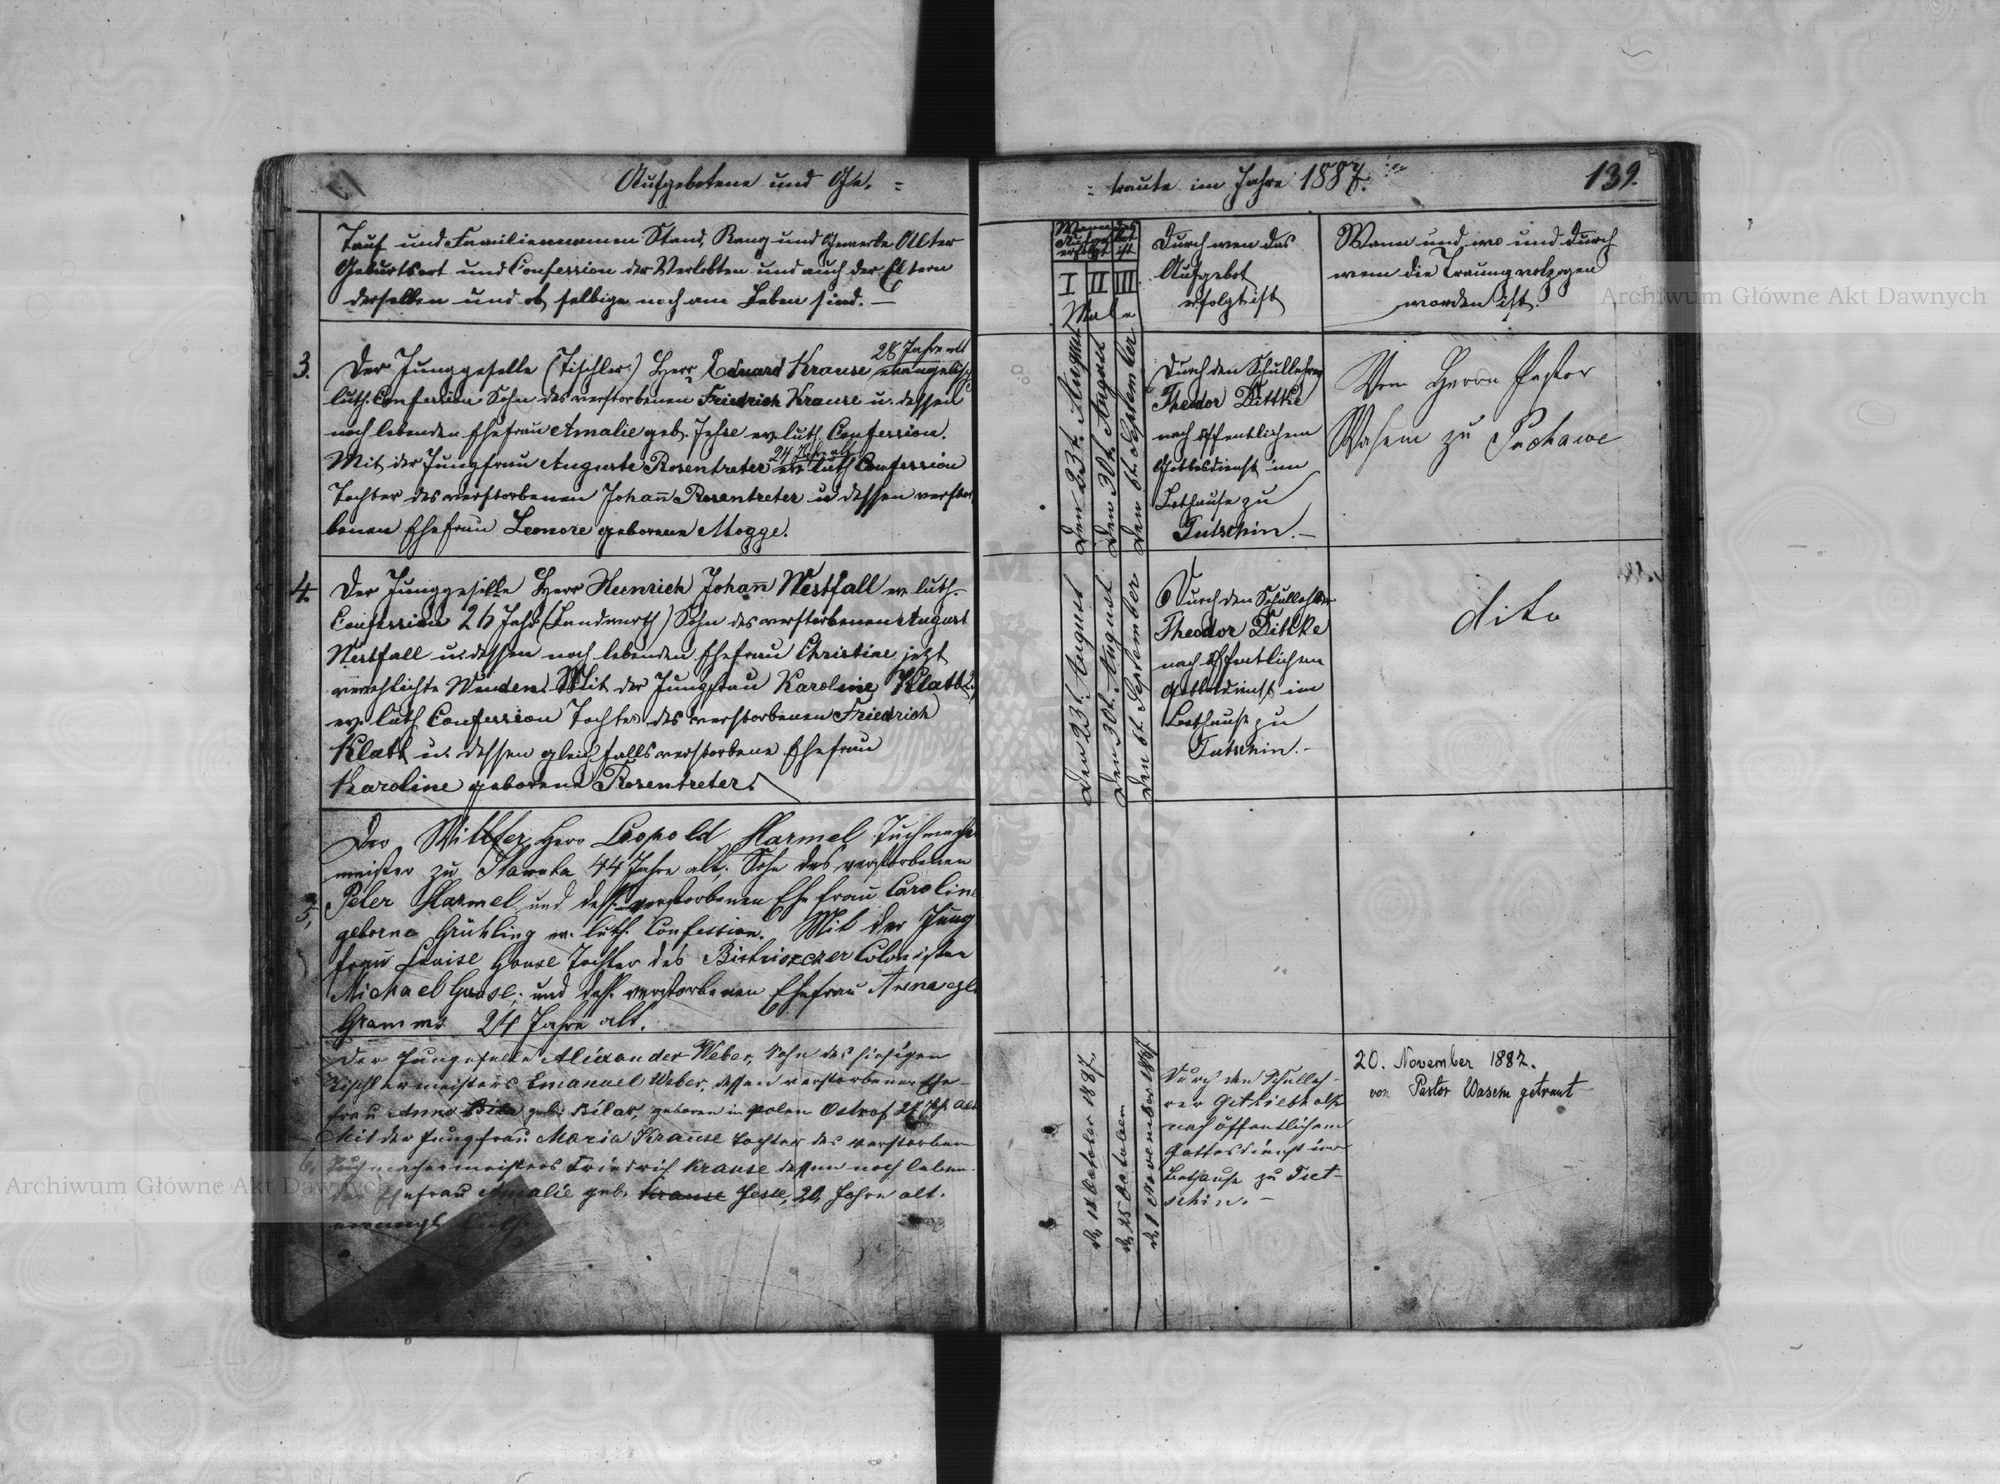 Aufgebotene und Ge. =
= traute im Jahre 1887.
139.
Tauf und Familiennamen Stand, Rang und Gewerbe Alter
Geburtsort und Confession der Verlobten und auch der Eltern
derselben und ob selbige noch am Leben sind. —
Wann das
Aufgebot
erfolgt ist
I II III
Male
Durch wen das
Aufgebot
erfolgt ist
Wann und wo und durch
wem die Traung volzogen
worden ist.
3.
28 Jahre alt
Der Junggeselle (Tischler) Herr Eduard Krause evangelisch
luth. Confession Sohn des verstorbenen Friedrich Krause u. dessen
noch lebenden Ehefrau Amalie geb. Jesse ev. luth. Confession.
24 Jahr alt
Mit der Jungfrau Auguste Rosentreter ev luth Confession
Tochter des verstorbenen Johann Rosentreter u dessen verstor
benen Ehefrau Leonore geborene Mogge.
den 23t. August
den 30t. August
den 6t. September
Durch den Schullehrer
Theodor Dittke
nach öffentlichem
Gottesdienst im
Bethause zu
Tutschin. —
Von Herrn Pastor
Wasem zu
4.
Der Junggeselle Herr Heinrich Johann Westfall ev luth-
Confession Jahr (Landwirth) Sohn des verstorbenen August
Westfall u. dessen noch lebenden Ehefrau Christine jetzt
verehlichte Mit der Jungfrau Karoline Klatt
ev. luth Confession Tochter des verstorbenen Friedrich
Klatt u. dessen gleichfalls verstorbene Ehefrau
Karoline geborene Rosentreter.
den 23t. August
den 30t. August
den 6t. September
Durch den Schullehrer
Theodor Dittke
nach öffentlichem
Gottesdienst im
Bethause zu
Tutschin. —
dito
5,
Der Wittfer Herr Leopold Harmel Tuchmacher
meister zu Slawuta 44 Jahre alt, Sohn des verstorbenen
Peter Harmel und dess. verstorbenen Ehefrau Caroline
geborne Grühling ev. luth. Confession. Mit der Jung
frau Louise Gonse Tochter des Colonisten
Michael Gonse, und dess. verstorbenen Ehefrau Anna
24 Jahre alt.
6.
Der Jungeselle Alexander Weber, Sohn des hiesigen
Tischlermeisters Emanuel Weber, dessen verstorbener Ehe-
frau Anna geb. Bilar, geboren in Polen Ostrof alt
Mit der Jungfrau Maria Krause Tochter des verstorben
Tuchmachermeisters Friedrich Krause dessen noch leben-
den Ehefrau Amalie geb. Krause Jesse, 20 Jahre alt.
evangl. luth.
d. 18 October 1887.
d. 25 October
d. 1 November 1887.
Durch den Schulleh-
rer
nach öffentlichem
Gottesdienst im
Bethause zu Tut-
schin. —
20. November 1887.
von Pastor Wasem getraut
Archiwum Główne Akt Dawnych
Archiwum Główne Akt Dawnych